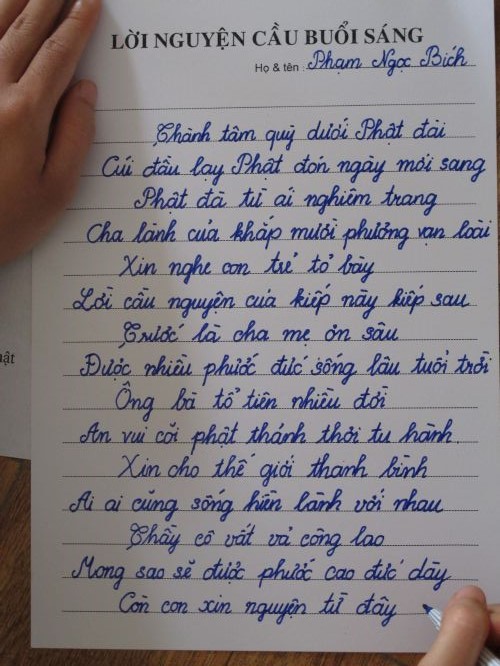 LỜI NGUYỆN CẦU BUỔI SÁNG
Họ & tên : Phạm Ngọc Bích
Thành tâm quỳ dưới Phật đài
Cúi đầu lạy Phật đón ngày mới sang
Phật đã từ ái nghiêm trang
Cha lành của khắp mười phương vạn loài
Xin nghe con trẻ tỏ bày
Lời cầu nguyện của kiếp này kiếp sau
Trước là cha mẹ ơn sâu
Được nhiều phước đức sống lâu tuổi trời
Ông bà tổ tiên nhiều đời
An vui cõi phật thánh thơi tu hành
Xin cho thế giới thanh bình
Ai ai cũng sống hiền lành với nhau
Thầy cô vất vả công lao
Mong sao sẽ được phước cao đức dày
Còn con xin nguyện từ đây
ật